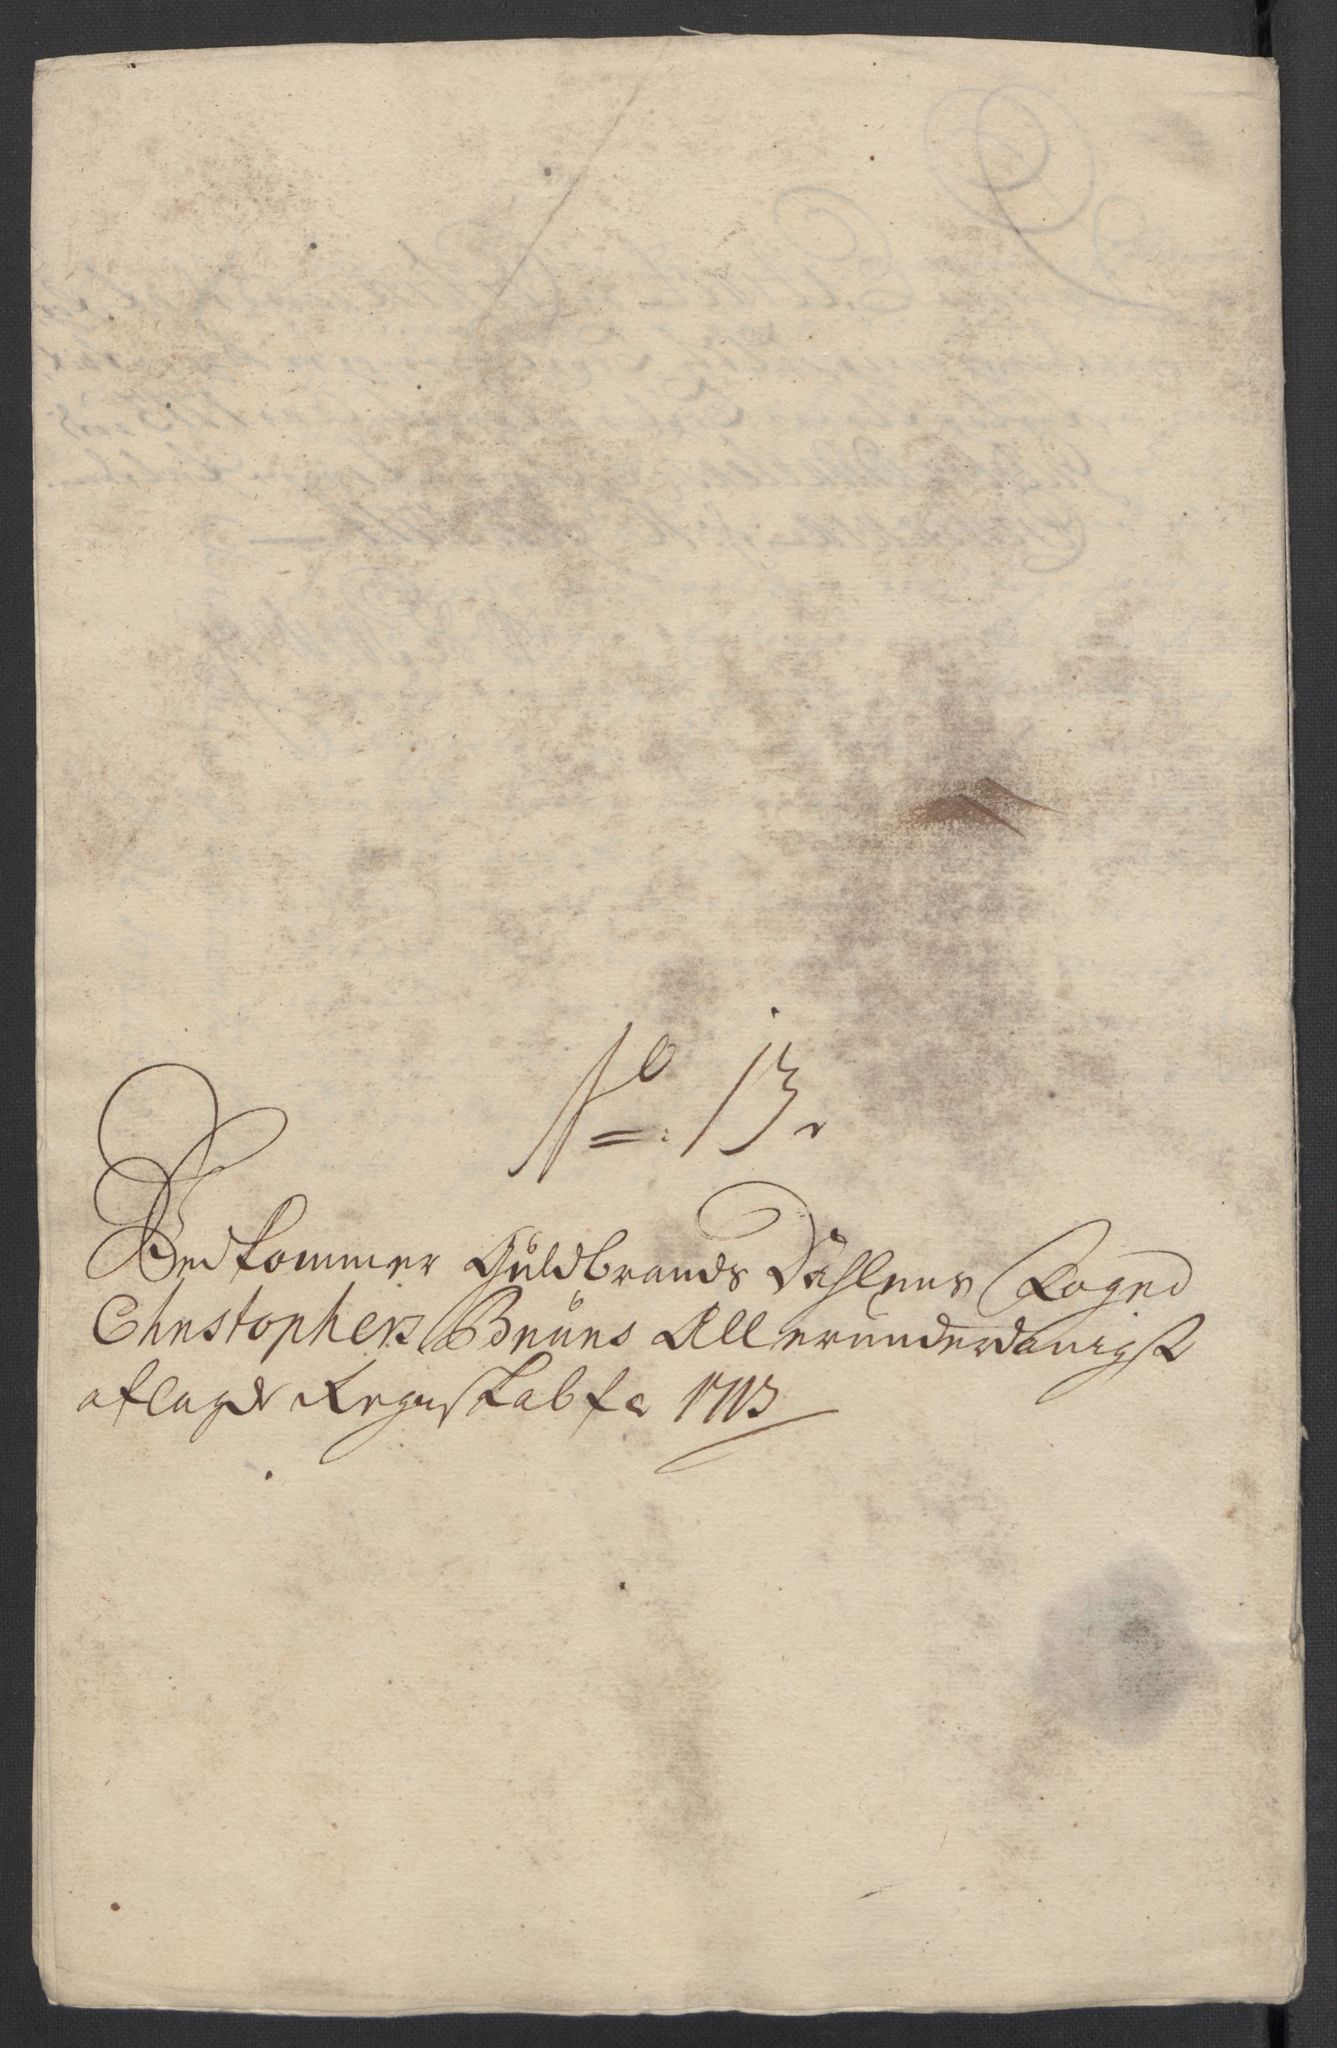 No. 13.
Vedkommer Guldbrands Dahlens Foged
Christophers Bruuns Allerunderdanigst
aflagde Regnskab for 1713